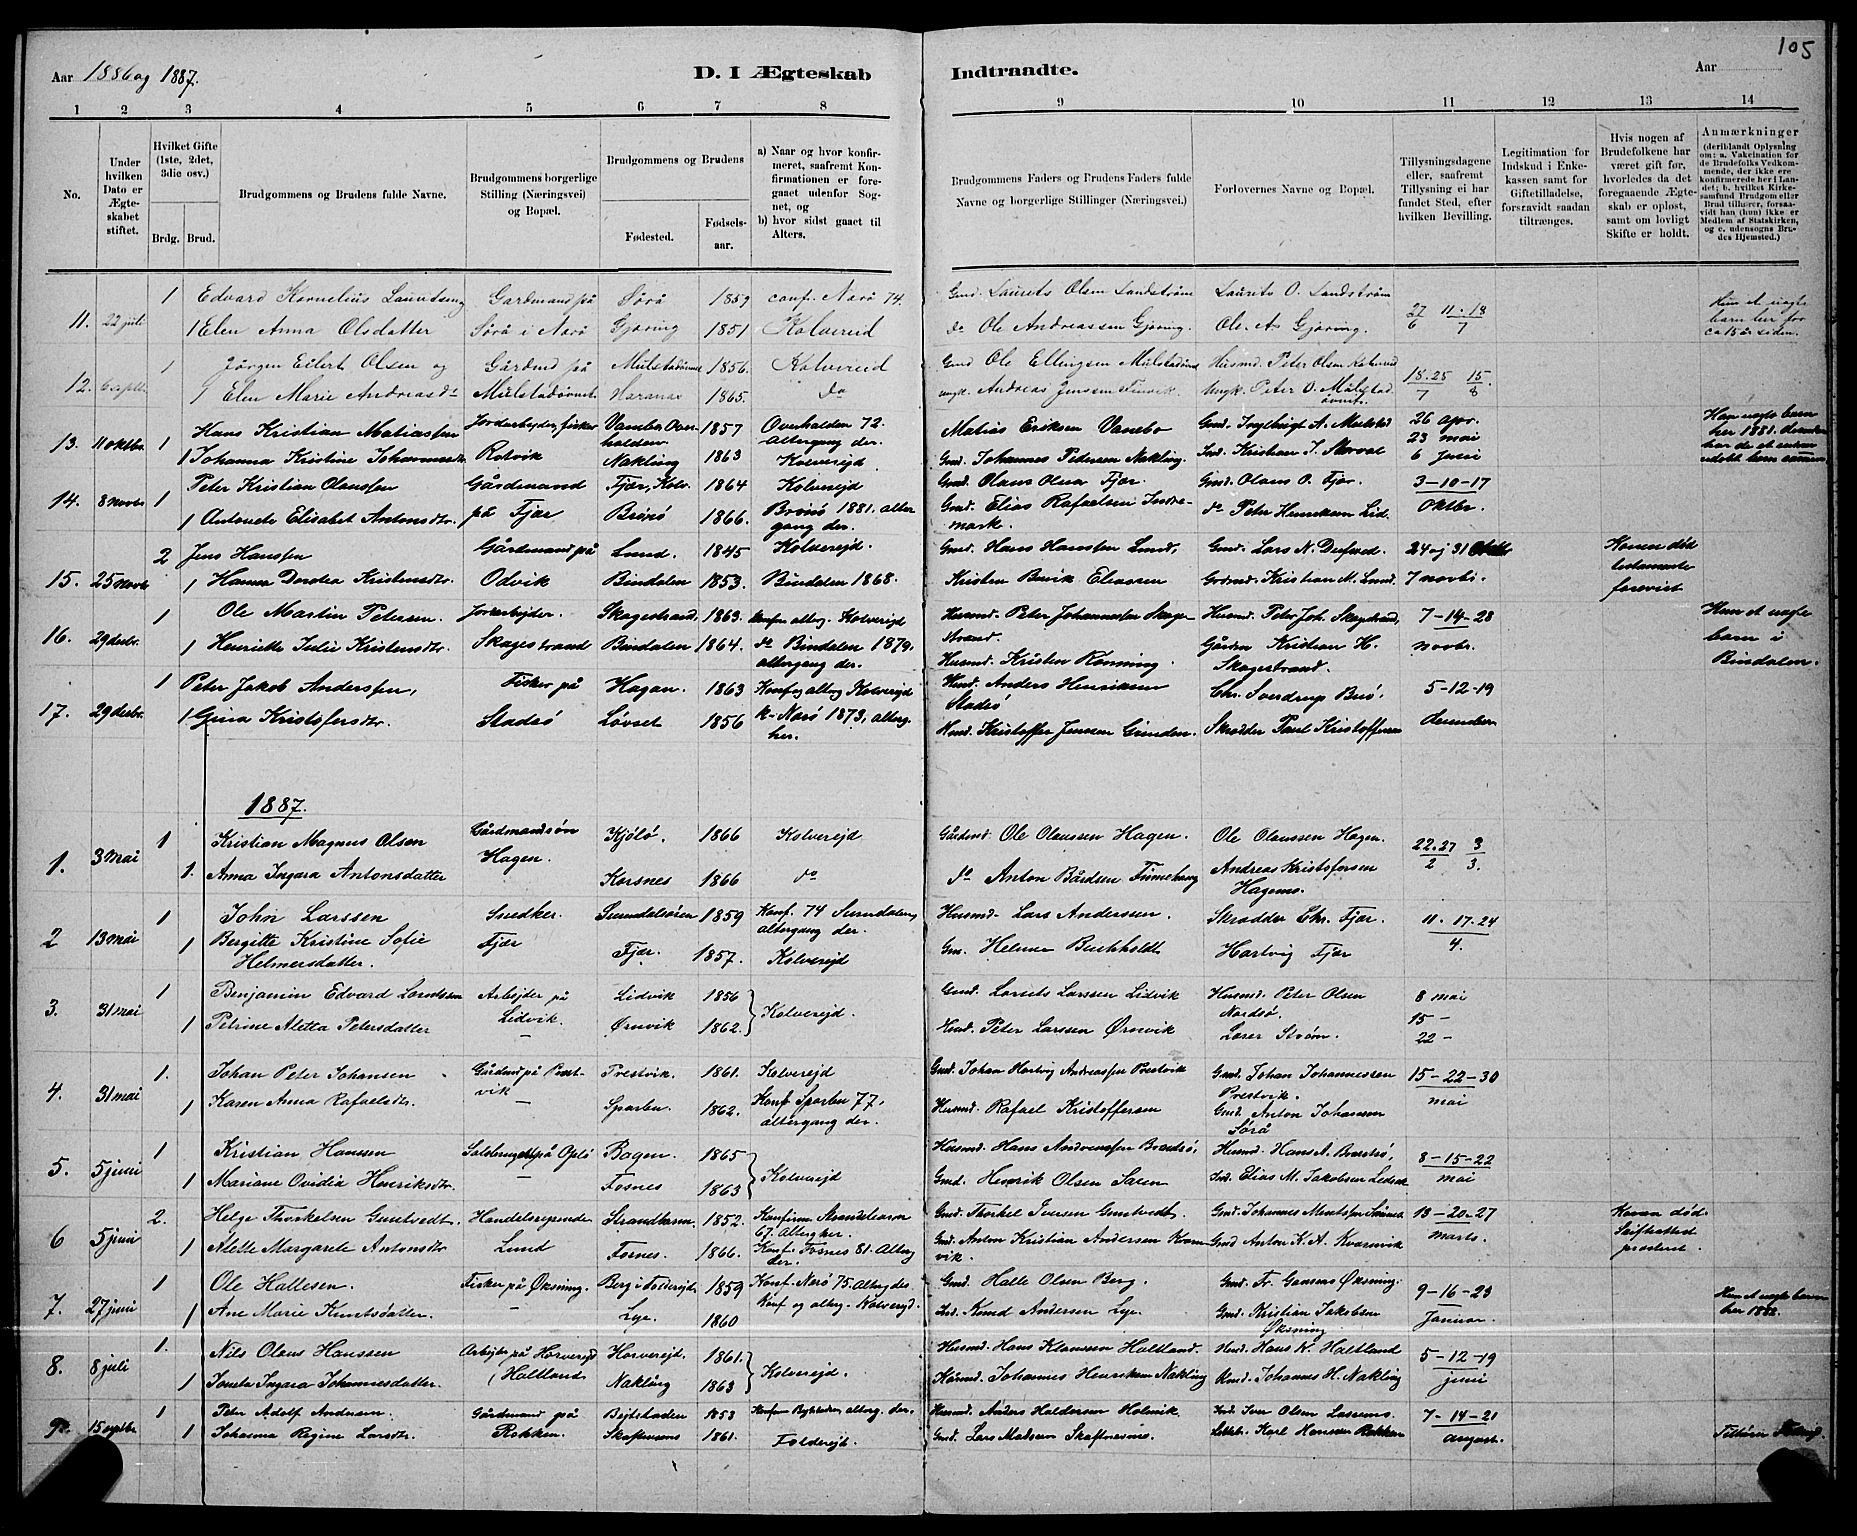 105
Aar 1886 og 1887.
D. I Ægteskab
Indtraadte.
Aar
1 2 3 4 5 6 7 8 9 10 11 12 13 14
No.
Under hvilken Dato er Ægteskabet stiftet.
Hvilket Gifte (1ste, 2det, 3die osv.)
Brdg. Brud.
Brudgommens og Brudens fulde Navne.
Brudgommens borgerlige Stilling (Næringsvei) og Bopæl.
Brudgommens og Brudens
Fødested.
Fødselsaar.
a) Naar og hvor konfirmeret, saafremt Konfirmationen er foregaaet udenfor Sognet, og
b) hvor sidst gaaet til Alters.
Brudgommens Faders og Brudens Faders fulde Navne og borgerlige Stillinger (Næringsvei.)
Forlovernes Navne og Bopæl.
Tillysningsdagene eller, saafremt Tillysning ei har fundet Sted, efter hvilken Bevilling.
Legitimation for Indskud i Enkekassen samt for Giftetilladelse, forsravidt saadan tiltrænges.
Hvis nogen af Brudefolkene har været gift før, hvorledes da det foregaaende Ægteskab er opløst, samt om lovligt Skifte er holdt.
Anmærkninger (deriblandt Oplysning om: a. Vakcination for de Brudefolks Vedkommende, der ikke ere konfirmerede her i Landet; b. hvilket Kirkesamfund Brudgom eller Brud tilhører, forsaavidt han (hun) ikke er Medlem af Statskirken, og c. udensogns Brudes Hjemsted.)
1 Edvard Kornelius Lauritsen Gardmand på Sørå 1859 conf. Narö 74. Gmd. Laurits Olsen Landstrøm Laurits O. Landstrøm
11. 22 juli 1 Elen Anna Olsdatter Sørå i Narö Gjøring 1851 Kolvereid do Ole Andreassen Gjøring. Ole A. Gjøring. 27/6 11.18/7 Hun et uægte barn her for ca 15 år siden.
1 Jörgen Eilert Olsen og Gårdmd på 1856. Kolvereid Gmd Ole Ellingsen Husmd. Peter Olsen
12. 6 septbr. 1 Elen Marie Andreasdr Haranæs 1865. do Andreas Jensen Finvik. Ungk. Peter O. Mulstadövnet. 18.25/7 15/8.
1 Hans Kristian Matiassen Jordarbejder, fisker Vambo, Overhalden 1857 Overhalden 72. altergang der. Matias Eriksen Vanebo Gmd. Ingebrigt A. Mulstad 26 apr. 23 mai
13. 11 oktbr. 1 Johanna Kristine Johannesdtr. Rotvik Nakling 1863 Kolverejd Gmd. Johannes Pedersen Nakling. Ind. Kristian J. 6 juni Han uægte barn her 1881.
Peter Kristian Olaussen Gårdmand Fjær, Kolv. 1864 Kolverejd Gmd. Olaus Olsen Fjær. Gmd. Olaus O. Fjær. 3-10-17
14. 8 novbr. 1 1 Antonete Elisabet Antonsdtr. på Fjær Brönö 1866. Brönö 1881. altergang der. Gmd. Elias Rafaelsen Indremark. do Peter Henriksen Lid. Oktbr.
2 Jens Hansen Gårdmand på Lund. 1845 Kolverejd. Gmd. Hans Hansen Lund, Gmd. Lars N. 24 og 31 Oktbr Konen död testamente forevist
15. 25 novbr. 1 Hanna Dortea Kristensdtr. Odvik Bindalen 1853. Bindalen 1868. Kristen Buvik Eliassen Gårdmd. Kristian M. Lund. 7 novbr.
1 Ole Martin Petersen. Jordarbejder. Skagestrand 1863. Konfr altrg. Kolverejd Husmd. Peter Johannesen Skagestrand. Husmd. Peter Joh. Skagstrand, 7-14-28 Hun et uægte barn i Bindalen.
16. 29 decbr. 1 Henriette Julie Kristensdtr. Skagestrand Bindalen 1864. do Bindalen 1879. altergang der. Husmd. Kristen Rönning. Gården Kristian H. Skagestrand. novbr.
1 Peter Jakob Andersen, Fisker på Hagan. 1863 Konf og altrg Kolverejd Husmd. Anders Henriksen Stadsö Chr. Sverdrup Buö. 5-12-19
17. 29 decbr. 1 Gina Kristofersdtr. Stadsö Lövset 1856 k. Narö 1873, alterg. her. Husmd. Kristoffer Jenssen Grinden. Skrædder Paul Kristoffersen december
1887.
1 Kristian Magnus Olsen Gårdmandssön Kjölö. 1866 Kolverejd Gårdmd. Ole Olaussen Hagen. Ole Olaussen Hagen.
1. 3 mai 1. Anna Ingara Antonsdatter Hagen. Korsnes 1866 do do Anton Bårdsen Finnehaug Andreas Kristofersen Hagens. 22.27/2 3/3.
1 John Larssen Snedker. Surndalsören 1859 Konf. 74 Surndalen, altergang der. Husmd. Lars Andersen. Skrædder Chr. Fjær. 11. 17. 24
2 13 mai 1 Bergitte Kristine Sofie Helmersdatter. Fjær Fjær. 1857. Kolverejd Gm. Helmer Buchholdt Hartvig Fjær 4.
1 Benjamin Edvard Arbejder på Lidvik 1856 Gmd. Laruts Larssen Lidvik Husmd. Peter Olsen Nordsö. 8 mai
3. 31 mai 1 Petrine Aletta Petersdatter Lidvik. Ørnvik 1862. Kolverejd. Husmd. Peter Larssen Ørnvik Laser Ström. 15 - 22 -
1. Johan Peter Johansen Gårdmd på Prestvik Prestvik. 1861. Kolverejd Gmd. Johan Hartvig Andreassen Prestvik Gmd. Johan Johannessen Prestvik. 15-22-30
4. 31 mai 1 Karen Anna Rafaelsdtr. - Sparbu. 1862. Konf Sparbu 77. altergang der. Husmd. Rafael Kristoffersen Gmd. Anton Johansen Sörå mai
1 Kristian Hanssen på Oplö Bogen. 1865 Husmd. Hans Husmd. Hans A. 8-15-22
5. 5 juni 1 Mariane Ovidia Henriksdtr. - Fosnes 1863 Kolverejd Gmd. Henrik Olsen Elias M. Jakobsen mai
2. Helge Thorkelsen Gmtvedt. Handelsrejsende Strandbarm. 1852. Konfirm Strandebarm 67. Alterg her. Gmd. Thorkel Iversen Gmtvedt. Gmd. Johannes 13-20-27 Konen död Skifteattest prestert.
6 5 juni 1 Alette Margarete Antonsdtr. Lund Fosnes. 1866. Konf. Fosnes 81. Alterg der. Gmd. Anton Kristian Andersen Kvamvik. Gmd Anton K. A. Kvamvik marts.
1 Ole Hallesen. Fisker på Øksning. Berg i Foldereid. 1859 Konf. Narö 75. Alterg der Gmd. Halle Olsen Berg. Gmd. Fr. Øksning. 9-16-23
7. 27 juni 1 Ane Marie Knutsdatter. - Lye. 1860 Konf og alterg. Kolverejd. Ind. Knud Andersen Lye. Gmd. Kristian Jakobsen Øksning Januar. Hun et uægte barn her 1882.
1. Nils Olaus Hanssen Arbejder på Horverejd Horverejd. 1861. Husmd. Hans Klaussen Haltland. Husmd. Hans K. Haltland 5-12-19
8. 8 juli 1 Ingara Johannesdatter. (Haltland Nakling 1863 Kolverejd. Husmd. Johannes Henriksen Nakling Husmd. Johannes H. Nakling juni
1 Peter Adolf Andersen. Gårdmand på Bejtstaden 1853 Konfirm Bejtstaden, alterg. der. Husmd. Anders Haldorsen Holmvik. Ind. Iver Olsen 7-14-21
9. 15 septbr. 1 Johanna Regine Larsdtr. Rokken. 1861. Folderejd. Gmd. Lars Madsen Karl Hansen Rokken august. Tilhörer